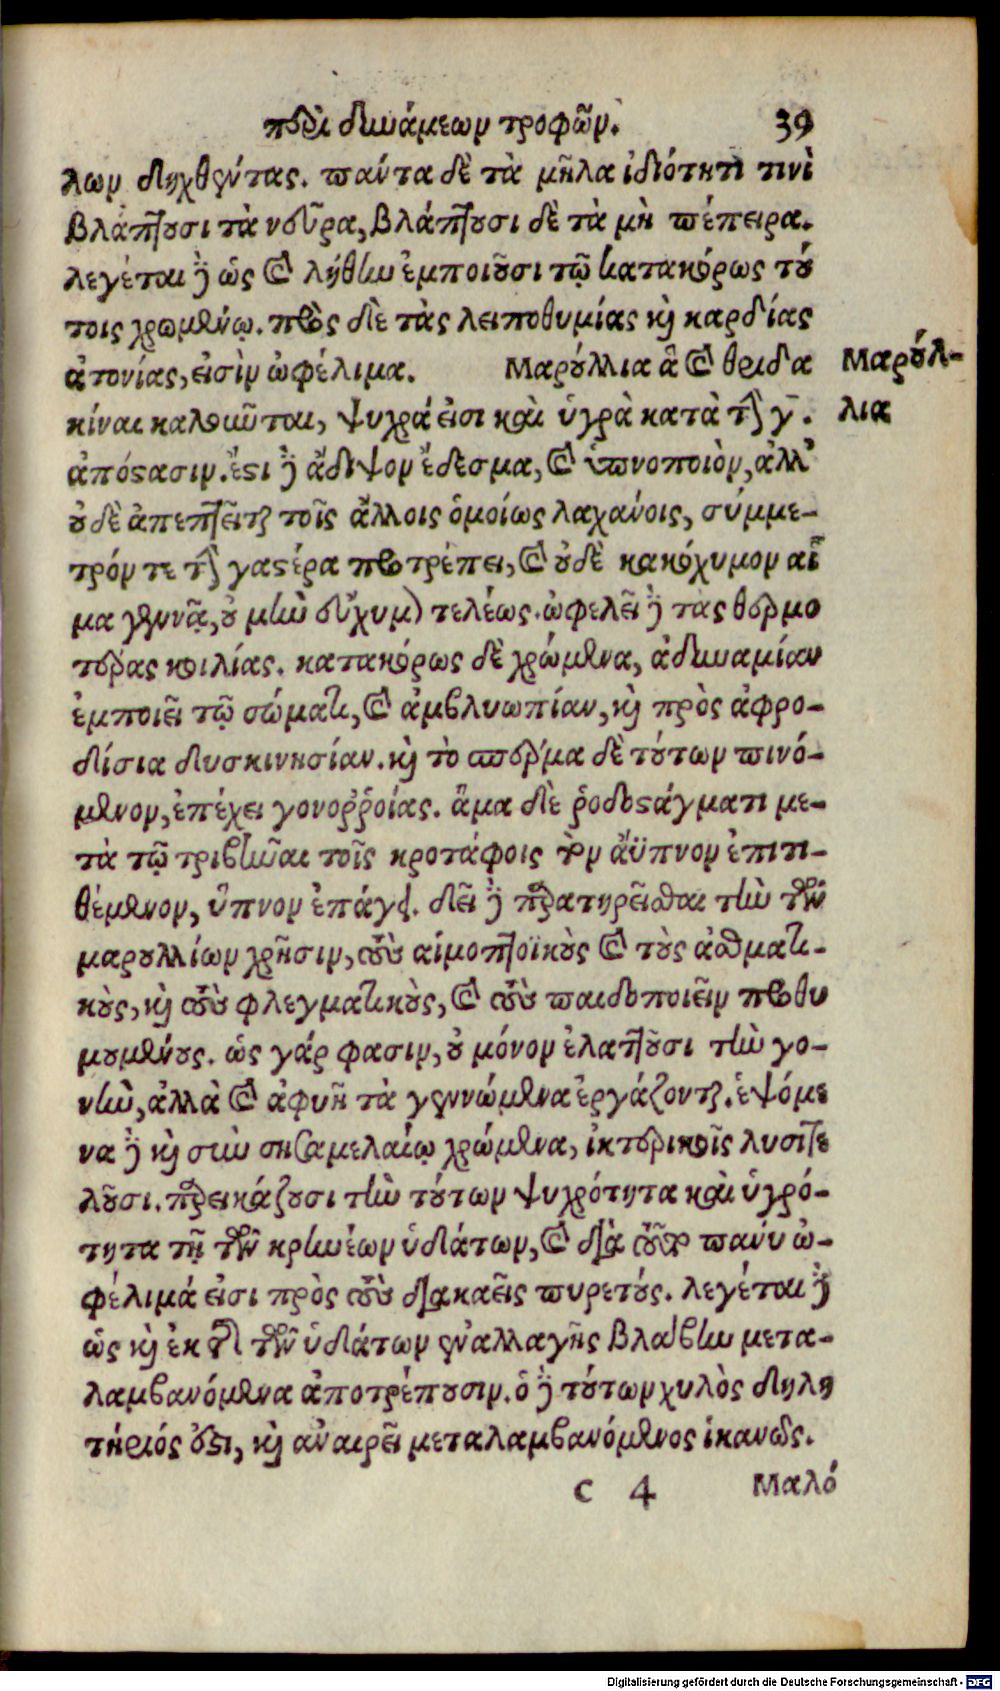 περὶ δυνάμεων τροφῶν. 39
λων δηχθέντας. πάντα δὲ τὰ μῆλα ἰδιότητί τινι
βλάπτουσι τὰ νεῦρα, βλάπτουσι δὲ τὰ μὴ πέπειρα.
λέγεται δὲ ὡς καὶ λήθην ἐμποιοῦσι τῷ κατακόρως τού
τοις χρωμένῳ. πρὸς δὲ τὰς λειποθυμίας καὶ καρδίας
ἀτονίας, εἰσὶν ὠφέλιμα. Μαρούλλια ἃ καὶ θριδα
κίναι καλοῦνται, ψυχρά εἰσι καὶ ὑγρὰ κατὰ τὴν γ.
ἀπόστασιν. ἔστι δὲ ἄδιψον ἔδεσμα, καὶ ὑπνοποιὸν, ἀλλ'
οὐδὲ ἀπεπτεῖται τοῖς ἄλλοις ὁμοίως λαχάνοις, σύμμε-
τρόν τε τὴν γαστέρα προτρέπει, καὶ οὐδὲ κακόχυμον αἷ
μα γεννᾷ, οὐ μὴν εὔχυμον τελέως. ὠφελεῖ δὲ τὰς θερμο
τέρας κοιλίας. κατακόρως δὲ χρώμενα, ἀδυναμίαν
ἐμποιεῖ τῷ σώματι, καὶ ἀμβλυωπίαν, καὶ πρὸς ἀφρο-
δίσια δυσκινησίαν. καὶ τὸ σπέρμα δὲ τούτων πινό-
μενον, ἐπέχει γονοῤῥοίας. ἅμα δὲ ῥοδοστάγματι με-
τὰ τῷ τριβῆναι τοῖς κροτάφοις τὸν ἄϋπνον ἐπιτι-
θέμενον, ὕπνον ἐπάγει. δεῖ δὲ παρατηρεῖσθαι τὴν τῶν
μαρουλλίων χρῆσιν, τοὺς αἱμοπτοϊκοὺς καὶ τοὺς ἀσθματι-
κοὺς, καὶ τοὺς φλεγματικοὺς, καὶ τοὺς παιδοποιεῖν προθυ
μουμένους. ὡς γάρ φασιν, οὐ μόνον ἐλαττοῦσι τὴν γο-
νὴν, ἀλλὰ καὶ ἀφυῆ τὰ γεννώμενα ἐργάζονται. ἑψόμε
να δὲ καὶ σὺν σησαμελαίῳ χρώμενα, ἰκτερικοῖς λυσιτε
λοῦσι. παρεικάζουσι τὴν τούτων ψυχρότητα καὶ ὑγρό-
τητα τῇ τῶν κρηνέων ὑδάτων, καὶ διὰ τοῦτο πάνυ ὠ-
φέλιμά εἰσι πρὸς τοὺς διακαεῖς πυρετούς. λέγεται δὲ
ὡς καὶ ἐκ τῆς τῶν ὑδάτων ἐναλλαγῆς βλάβην μετα-
λαμβανόμενα ἀποτρέπουσιν. ὁ δὲ τούτων χυλὸς δηλη
τήριός ἐστι, καὶ ἀναιρεῖ μεταλαμβανόμενος ἱκανῶς.
c 4 Μαλό
Μαρούλ-
λια
Digitalisierung gefördert durch die Deutsche Forschungsgemeinschaft - DFG